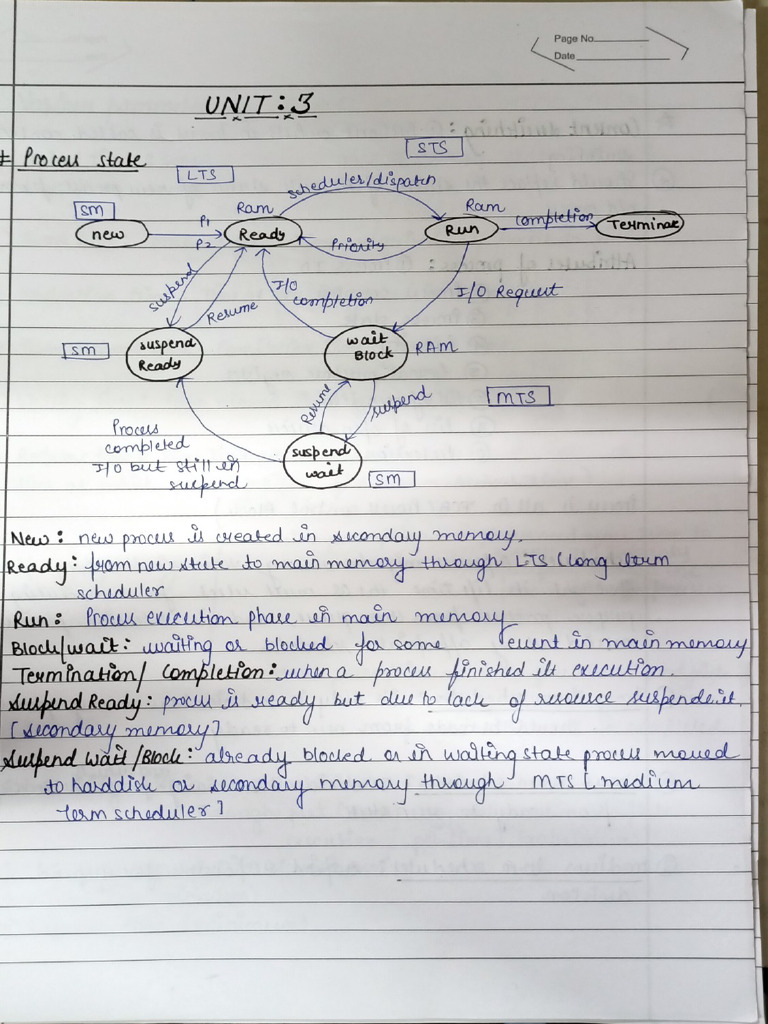 Page No.
Date
UNIT : 3
# Process state
STS
LTS
scheduler/dispatch
SM
Ram
Ram
new
P1
P2
Ready
Priority
Run
completion
Terminate
suspend
Resume
I/O
completion
I/O Request
SM
suspend
Ready
wait
Block
RAM
Resume
suspend
MTS
Process
completed
I/O but still in
suspend
suspend
wait
SM
New : new process is created in secondary memory.
Ready : from new state to main memory through LTS (long term
scheduler
Run : Process execution phase in main memory
Block/wait : waiting or blocked for some event in main memory
Termination/ Completion : when a process finished its execution.
Suspend Ready : process is ready but due to lack of resource suspende it.
[secondary memory]
Suspend wait/Block : already blocked or in waiting state process moved
to harddisk or secondary memory through MTS [medium
term scheduler]